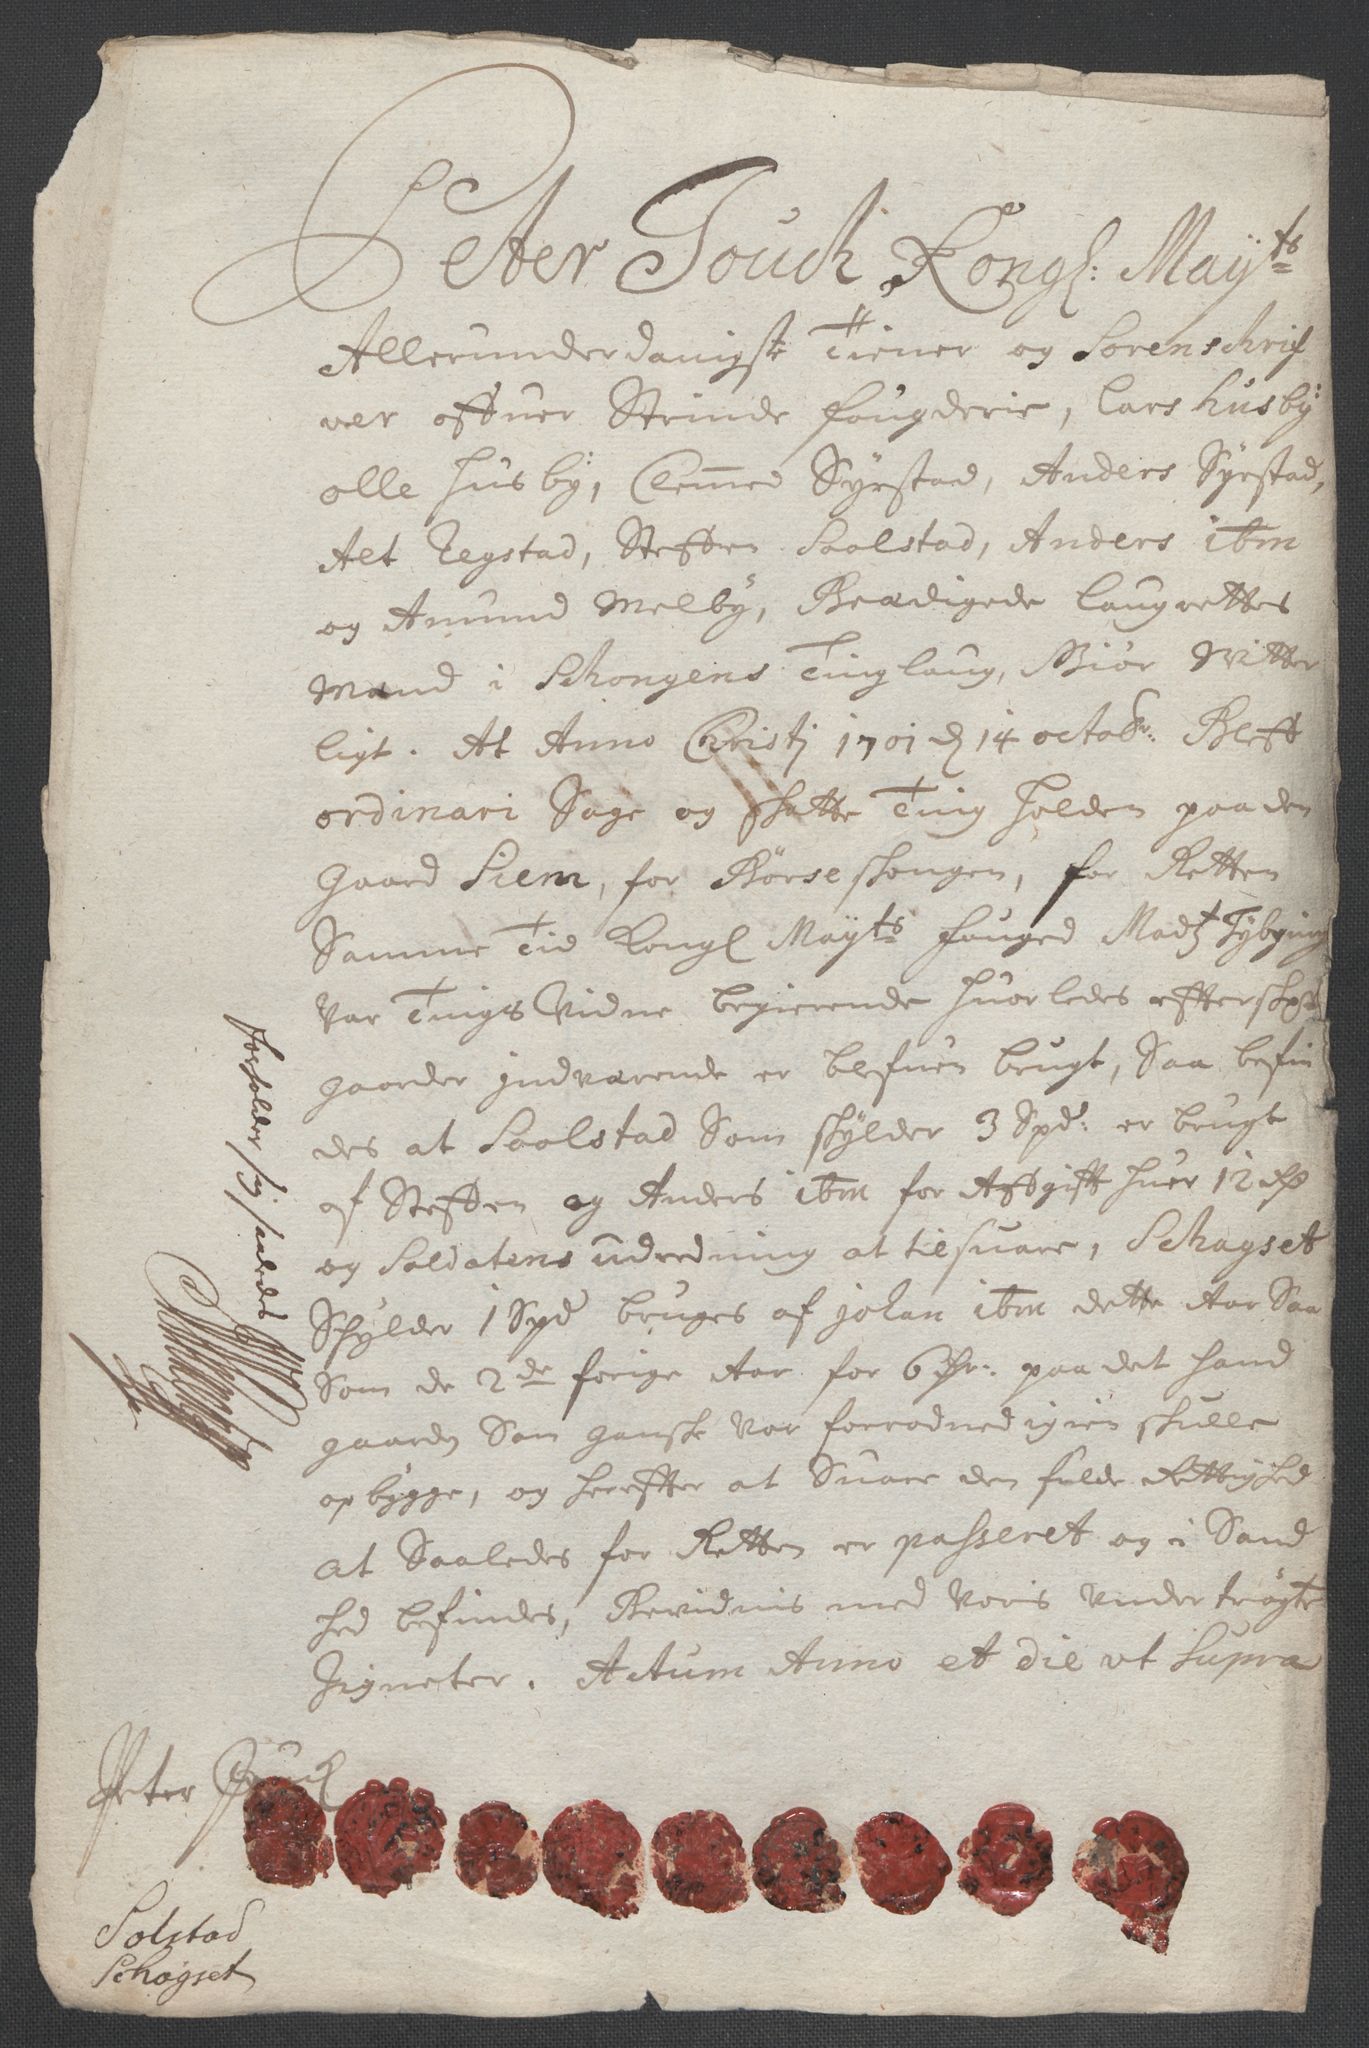 Peter Jouch Kongl: Mayts
Allerunderdanigste Tiener og Sorenschrif
ver offuer Strinde fougderie, Lars Husby
olle Husby, Clemed Syrstad, Anders Syrstad,
Alt Eegstad, Steffen Saalstad, Anders ibm
og Amund Melby, Beædigede Laugrettes
Mænd i Schongens Tinglaug, Giör Witter
ligt. At Anno Christj 1701 d 14 octobr: Bleff
ordinari Sage og skatte Ting holden paa den
gaard Siem, for Börseskongen, for Retten
Samme Tid Kongl Mayts fouged
Var Tings Vidne begierende huorledes
gaarder jndværende er blefuen brugt, Saa befin
des at Saalstad Som skylder 3 Spd: er brugt
af Steffen og Anders ibm for Afgift huer 12
og Soldatens udredning at tilsuare, Schagset
Skylder 1 Spd bruges af johan ibm dette Aar Saa
Som de 2de forige Aar for 6 paa det hand
gaarden Som ganske var forrodned igien skulle
opbygge, og herefter at Suare den fulde Rettighed
At Saaledes for Retten er passeret og i Sand
hed befindes, Bevidnis med Voris Vndertrögte
Signeter. Actum Anno et die ut Supra
forholder sig saaledes
Peter Jouch
Solstad
Schagset